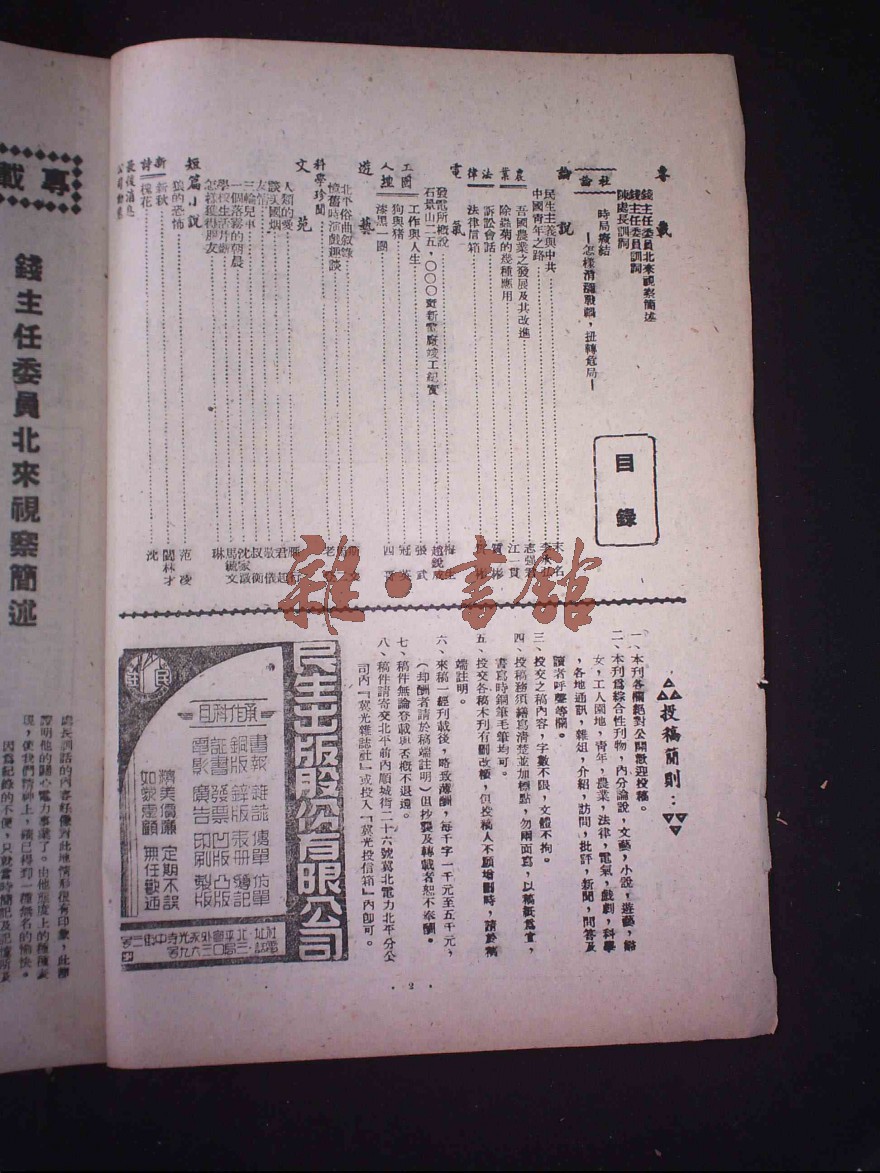 目錄
專載
錢主任委員北來視察簡述
錢主任委員訓詞
陳處長訓詞
社論
時局癥結
—怎樣消彌戰禍，扭轉危局—
論說
民生主義與中共
中國青年之路
農業
吾國農業之發展及其改進
除蟲菊的幾種應用
法律
訴訟會話
法律信箱
電氣
發電所概說
石景山二五，〇〇〇瓩新電廠竣工紀實
工人園地
工作與人生
狗與豬
漆黑一團
遊藝
北平俗曲叙錄
憶舊時演戲趣談
科學珍聞
文苑
人類的愛
談美國烟
友情
三輪兒車
一個落霧的朝晨
學校生活片斷
怎樣獲得朋友
短篇小說
狼的恐怖
新詩
新秋
槐花
最後消息
江一貫
張武
冠英
四哥
叔衡
沈家
馬毓文
琳
范凌
閻林才
沈
投稿簡則：
一、本刊各欄絕對公開歡迎投稿。
二、本刊爲綜合性刊物，內分論說，文藝，小說，遊藝，婦
女，工人園地，青年，農業，法律，電氣，戲劇，科學
，各地通訊，雜俎，介紹，訪問，批評，新聞，問答及
讀者呼聲等欄。
三、投交之稿內容，字數不限，文體不拘。
四、投稿務須繕寫清楚並加標點，勿兩面寫，以稿紙爲宜，
書寫時鋼筆毛筆均可。
五、投交各稿本刊有刪改權，但投稿人不願增刪時，請於稿
端註明。
六、來稿一經刊載後，略致薄酬，每千字一千元至五千元，
（却酬者請於稿端註明）但抄襲及轉載者恕不奉酬。
七、稿件無論登載與否概不退還。
八、稿件請寄交北平前內順城街二十六號冀北電力北平分公
司內『冀光雜誌社』或投入『冀光投信箱』內卽可。
民生出版股份有限公司
承作科目
書報 雜誌 傳單 仿單
銅版 鋅版 表冊 簿記
証書 發票 凹版 凸版
電影 廣告 印刷 製版
精美價廉 定期不誤
如蒙惠顧 無任歡迎
民生
· 2 ·
雜·書館
專載
錢主任委員北來視察簡述
處長訓話的內容好像對此地情形很有印象，此節
證明他的關心電力事業了。由他態度上的種種表
現，使我們精神上，確已得到一種無名的愉快。
因爲紀錄的不便，只就當時簡記及記憶所及